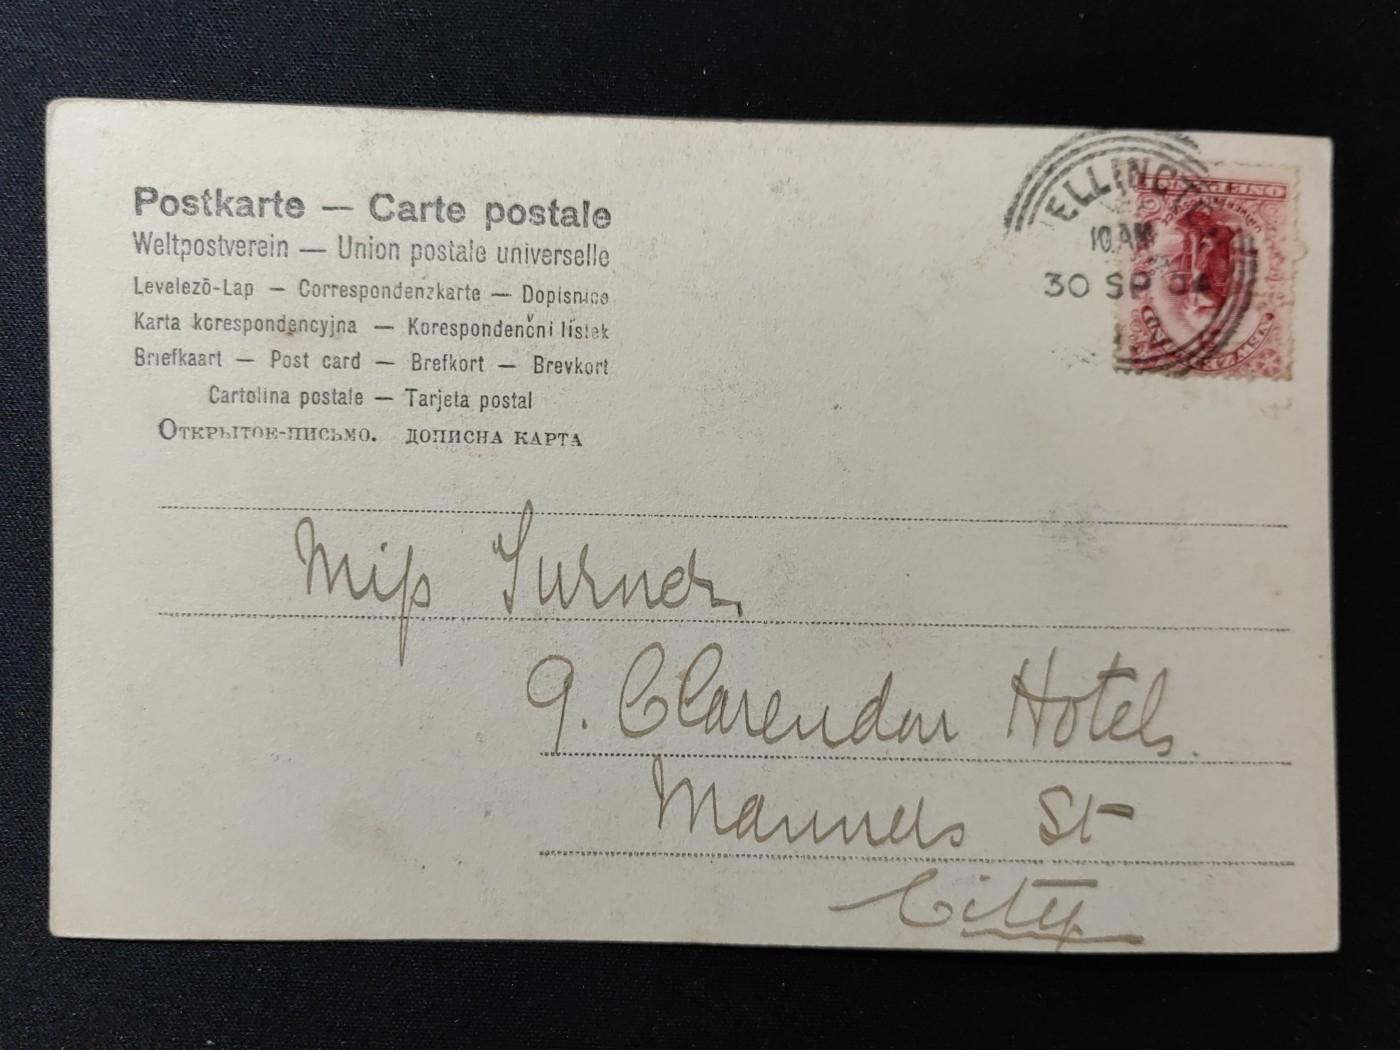 Postkarte — Carte postale
Weltpostverein — Union postale universelle
Levelező-Lap — Correspondenzkarte — Dopisnice
Karta korespondencyjna — Korespondenční lístek
Briefkaart — Post card — Brefkort — Brevkort
Cartolina postale — Tarjeta postal
Открытое-письмо. дописна карта
ELLINGT
10 AM
30 SP 04
ONE PENNY
UNIVERSAL POSTAGE
NEW ZEALAND
Miss Turner,
9. Clarendon Hotel.
Manners St
City